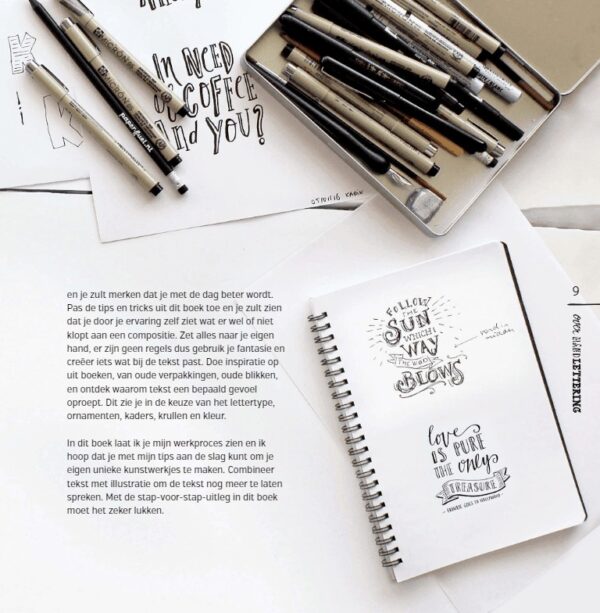 IN NEED
OF COFFEE
And YOU?
en je zult merken dat je met de dag beter wordt.
Pas de tips en tricks uit dit boek toe en je zult zien
dat je door je ervaring zelf ziet wat er wel of niet
klopt aan een compositie. Zet alles naar je eigen
hand, er zijn geen regels dus gebruik je fantasie en
creëer iets wat bij de tekst past. Doe inspiratie op
uit boeken, van oude verpakkingen, oude blikken,
en ontdek waarom tekst een bepaald gevoel
oproept. Dit zie je in de keuze van het lettertype,
ornamenten, kaders, krullen en kleur.
In dit boek laat ik je mijn werkproces zien en ik
hoop dat je met mijn tips aan de slag kunt om je
eigen unieke kunstwerkjes te maken. Combineer
tekst met illustratie om de tekst nog meer te laten
spreken. Met de stap-voor-stap-uitleg in dit boek
moet het zeker lukken.
FOLLOW
THE
SUN
WHICH
WAY
THE WIND
BLOWS
love
IS PURE
THE only
TREASURE
9
OVER HANDLETTERING